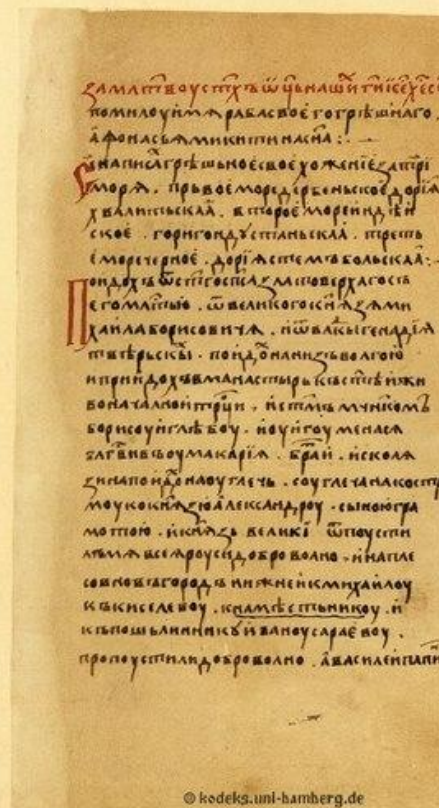 за млтвоу стхъ ѿцъ нашй гн їсе хе сн
помилоуй мя раба своего грѣшнаго
афонасья микитина сна :
написа грѣшьное свое хоженіе за три
моря . прьвое море дербеньское дорія
хвалитьскаа . второе море индѣи
ское . горигондустаньскаа . треть
е море черное . дорія стемъбольскаа :
Поидохъ ѿ стго спса златоверхаго съ
его млтью . ѿ великого кнзя ми
хаила борисовичя . и ѿ влкы генадїя
твѣрьскы . поидо на низъ волгою
и приидохъ в манастырь къ стѣй жи
воначалной трци . и стмъ мчнкомъ
борисоу и глѣбоу . и оу игоуменася
блгвивъ оу макарїя . братй . и с коля
зина поидо на оуглечь . с оуглеча на костр
моу ко кнзю александроу . с ыною гра
мотою . и кнзь великї ѿпоусти
лъ мя всея роуси доброволно . и на пле
со в новъгородъ в нижней к михайлоу
къ киселевоу . к намѣстьникоу . и
къ пошьлиннику йваноу сараевоу .
пропоустили доброволно . а василей папи
© kodeks.uni-bamberg.de